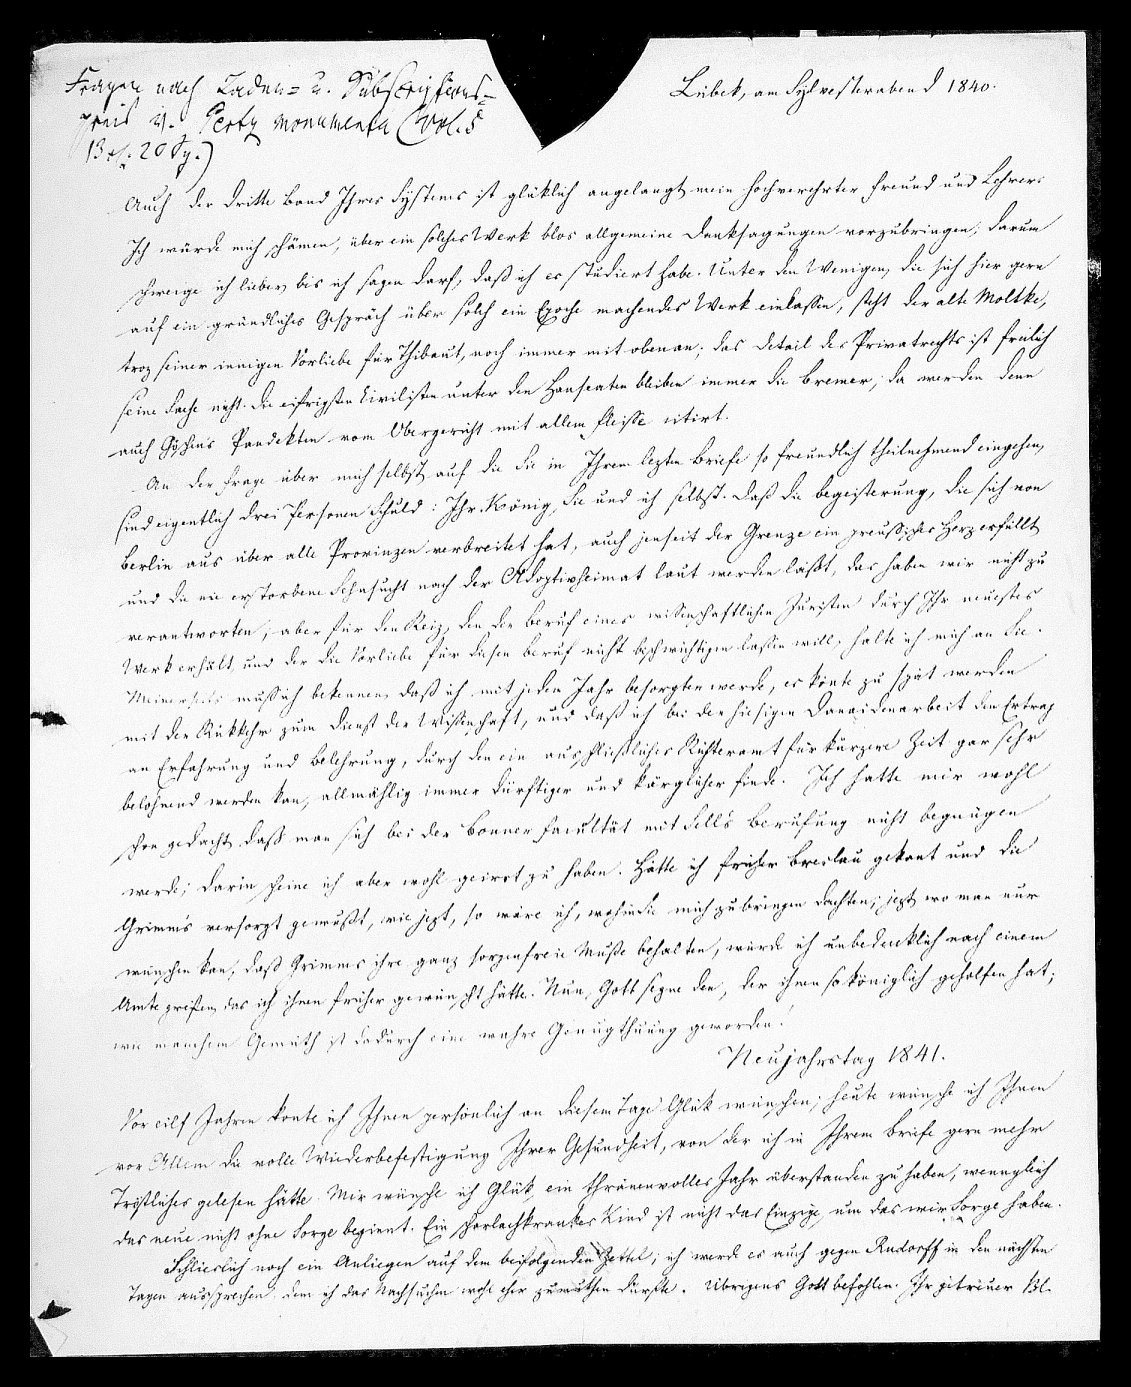 Fragen nach Laden- u. Subscriptions-
preis v. Pertz monumenta (Vol. 5
13 rf. 20 Sg.)
Lübek, am Sylvesterabend 1840.
Auch der dritte Band Ihres Systems ist glüklich angelangt, mein hochverehrter Freund und Lehrer.
Ich würde mich schämen, über ein solches Werk blos allgemeine Danksagungen vorzubringen; darum
schweige ich lieber, bis ich sagen darf, daß ich es studiert habe. Unter den Wenigen, die sich hier gern
auf ein gründliches Gespräch über solch ein Epoche machendes Werk einlassen, steht der alte Moltke,
troz seiner innigen Vorliebe für Thibaut, noch immer mit obenan; das Detail des Privatrechts ist freilich
seine Sache nicht. Die eifrigsten Civilisten unter den Hanseaten bleiben immer die Bremer; da werden denn
auch Göschens Pandekten vom Obergericht mit allem Fleisse citirt.
An der Frage über mich selbst, auf die Sie in Ihrem lezten Briefe so freundlich theilnehmend eingehen,
sind eigentlich drei Personen Schuld: Ihr König, Sie und ich selbst. Daß die Begeisterung, die sich von
Berlin aus über alle Provinzen verbreitet hat, auch jenseit der Grenze ein preußisches Herz erfüllt,
und die nie erstorbene Sehnsucht nach der Adoptivheimat laut werden läßt, das haben wir nicht zu
verantworten; aber für den Reiz, den der Beruf eines wissenschaftlichen Juristen durch Ihr neuestes
Werk erhält, und der die Vorliebe für diesen Beruf nicht beschwichtigen lassen will, halte ich mich an Sie.
Meinerseits muß ich bekennen, daß ich mit jedem Jahr besorgter werde, es könte zu spät werden
mit der Rükkehr zum Dienst der Wissenschaft, und daß ich bei der hiesigen Danaidenarbeit den Ertrag
an Erfahrung und Belehrung, durch den ein ausschließliches Richteramt für kürzere Zeit gar sehr
belohnend werden kan, allmählig immer dürftiger und kärglicher finde. Ich hatte mir wohl
schon gedacht, daß man sich bei der Bonner Facultät mit Sells Berufung nicht begnügen
werde; darin scheine ich aber wohl geirrt zu haben. Hätte ich früher Breslau gekant und die
Grimms versorgt gewußt, wie jezt, so wäre ich, wohin Sie mich zu bringen dachten; jezt, wo man nur
wünschen kan, daß Grimms ihre ganz sorgenfreie Muße behalten, würde ich unbedenklich nach einem
Amte greifen, das ich ihnen früher gewünscht hätte. Nun, Gott segne den, der ihnen so königlich geholfen hat;
wie manchem Gemüth ist dadurch eine wahre Genugthuung geworden!
Neujahrstag 1841.
Vor eilf Jahren konte ich Ihnen persönlich an diesem Tage Glük wünschen; heute wünsche ich Ihnen
vor Allem die volle Wiederbefestigung Ihrer Gesundheit, von der ich in Ihrem Briefe gern mehr
Tröstliches gelesen hätte. Mir wünsche ich Glük, ein thränenvolles Jahr überstanden zu haben, wenngleich
das neue nicht ohne Sorge beginnt. Ein scharlachkrankes Kind ist nicht das Einzige, um das wir Sorge haben.
Schlieslich noch ein Anliegen auf dem beifolgenden Zettel; ich werde es auch gegen Rudorff in den nächsten
Tagen aussprechen, dem ich das Nachsuchen wohl eher zumuthen dürfte. Übrigens Gott befohlen. Ihr getreuer Bl.